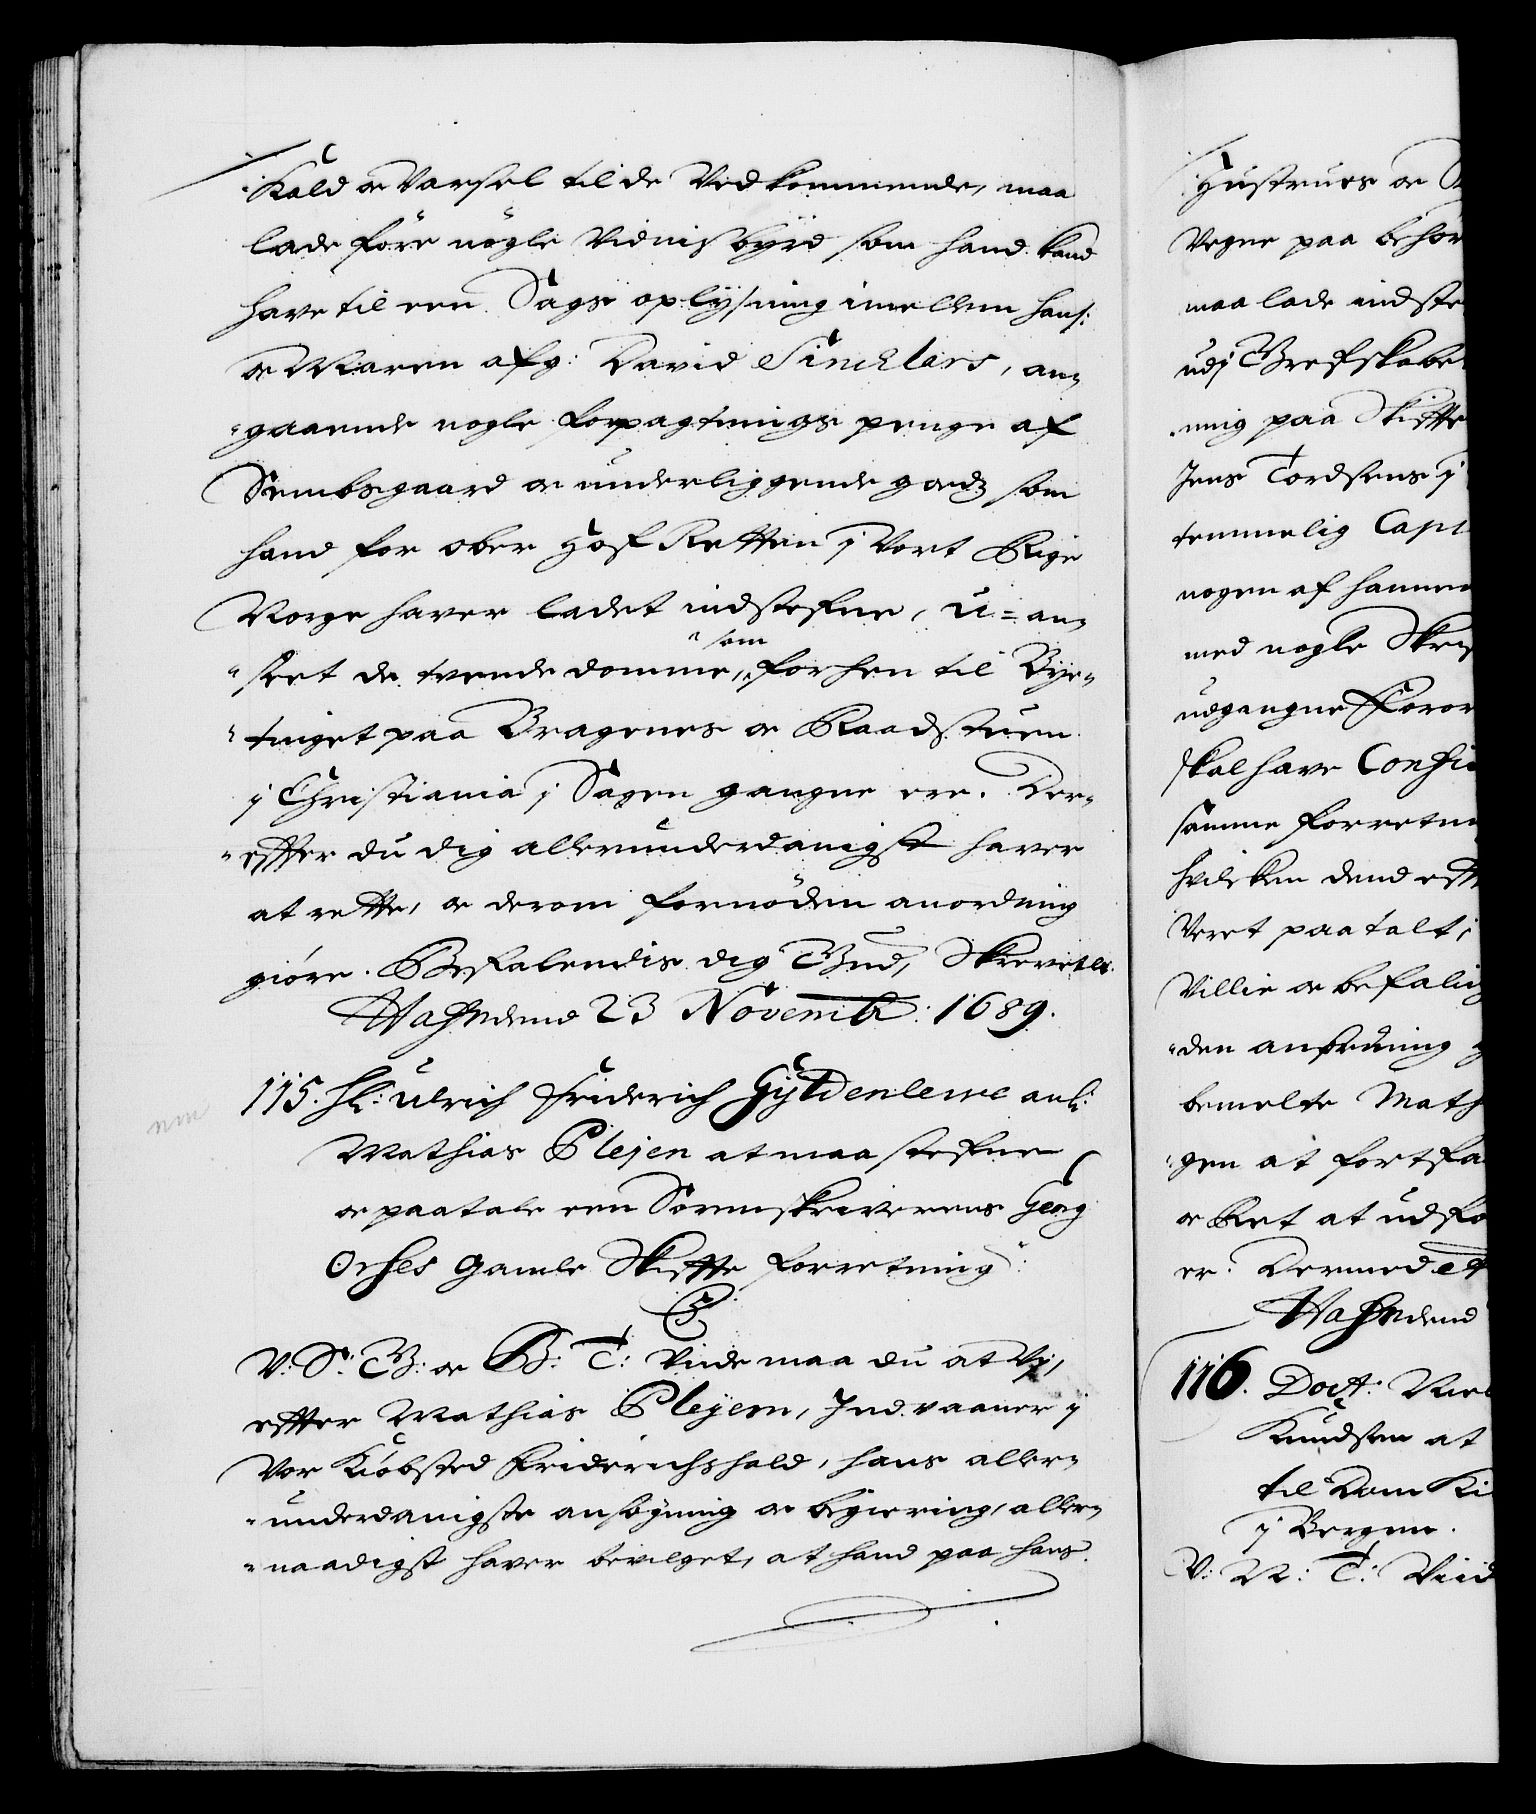 Kald oc Varsel til de Vedkommende, maa
lade före nögle Vidnisbyrd som hand kand
have til een Sags oplysning imellem hans:
oc Maren afg: David Sinclars, an-
gaaende nogle forpagtnings penge af
Sembsgaard oc underliggende godz som
hand for ober Hof Retten i Vort Rige
Norge haver ladet indstefne, u=an-
seet de tvende domme, som forhen til Bye-
tinget paa Bragenes oc Raadstuen
i Christiania i Sagen gangne ere. Der-
effter du dig allerunderdanigst haver
at rette, oc derom fornöden anordning
giöre. Befalendis dig Gud, Skrevet
Hafniæ dend 23 Novemb: 1689.
115. H: Ulrich Friderich Gyldenlewe anl:
Mathias Plejen at maa stefne
oc paatale een Sorenskriverens Georg
Orses gamle Skiffte forretning
C5
V: S: G: oc B: T: Viide maa du at Vj,
effter Mathias Plejem, Indvaaner i
Vor Kiöbsted Friderichshald, hans aller-
underdanigste ansögning oc begiering, aller-
naadigst haver bevilget, at hand paa hans
Hustrues oc
Vegne paa behör
maa lade indste
udj Brefskabe
ning paa Skiffte
Jens Tordsens i
temmelig Capi
nogen af hannem
med nogle Skrif
udgangne Foror
skal have Confi
samme forretni
hvilken dend eff
Veret paatalt,
Villie oc befaling
den anordning
bemelte Math
gen at fortfa
oc Ret at udfö
er. Dermed
Hafniæ dend
116. Doct: Niel
Knudsen at
til Dom Ki
i Bergen.
V: N: T: Viid